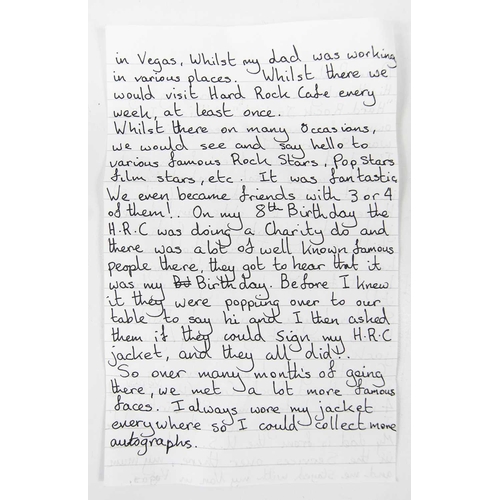 in Vegas, Whilst my dad was working
in various places. Whilst there we
would visit Hard Rock Cafe every
week, at least once.
Whilst there on many Occasions,
we would see and say hello to
various famous Rock Stars, Pop Stars
film stars, etc. It was fantastic
We even became friends with 3 or 4
of them!. On my 8th Birthday the
H.R.C was doing a Charity do and
there was alot of well known famous
people there, they got to hear that it
was my Birthday. Before I knew
it they were popping over to our
table to say hi and I then asked
them if they could sign my H.R.C
jacket, and they all did!.
So over many month's of going
there, we met a lot more famous
faces. I always wore my jacket
everywhere so I could collect more
autographs.